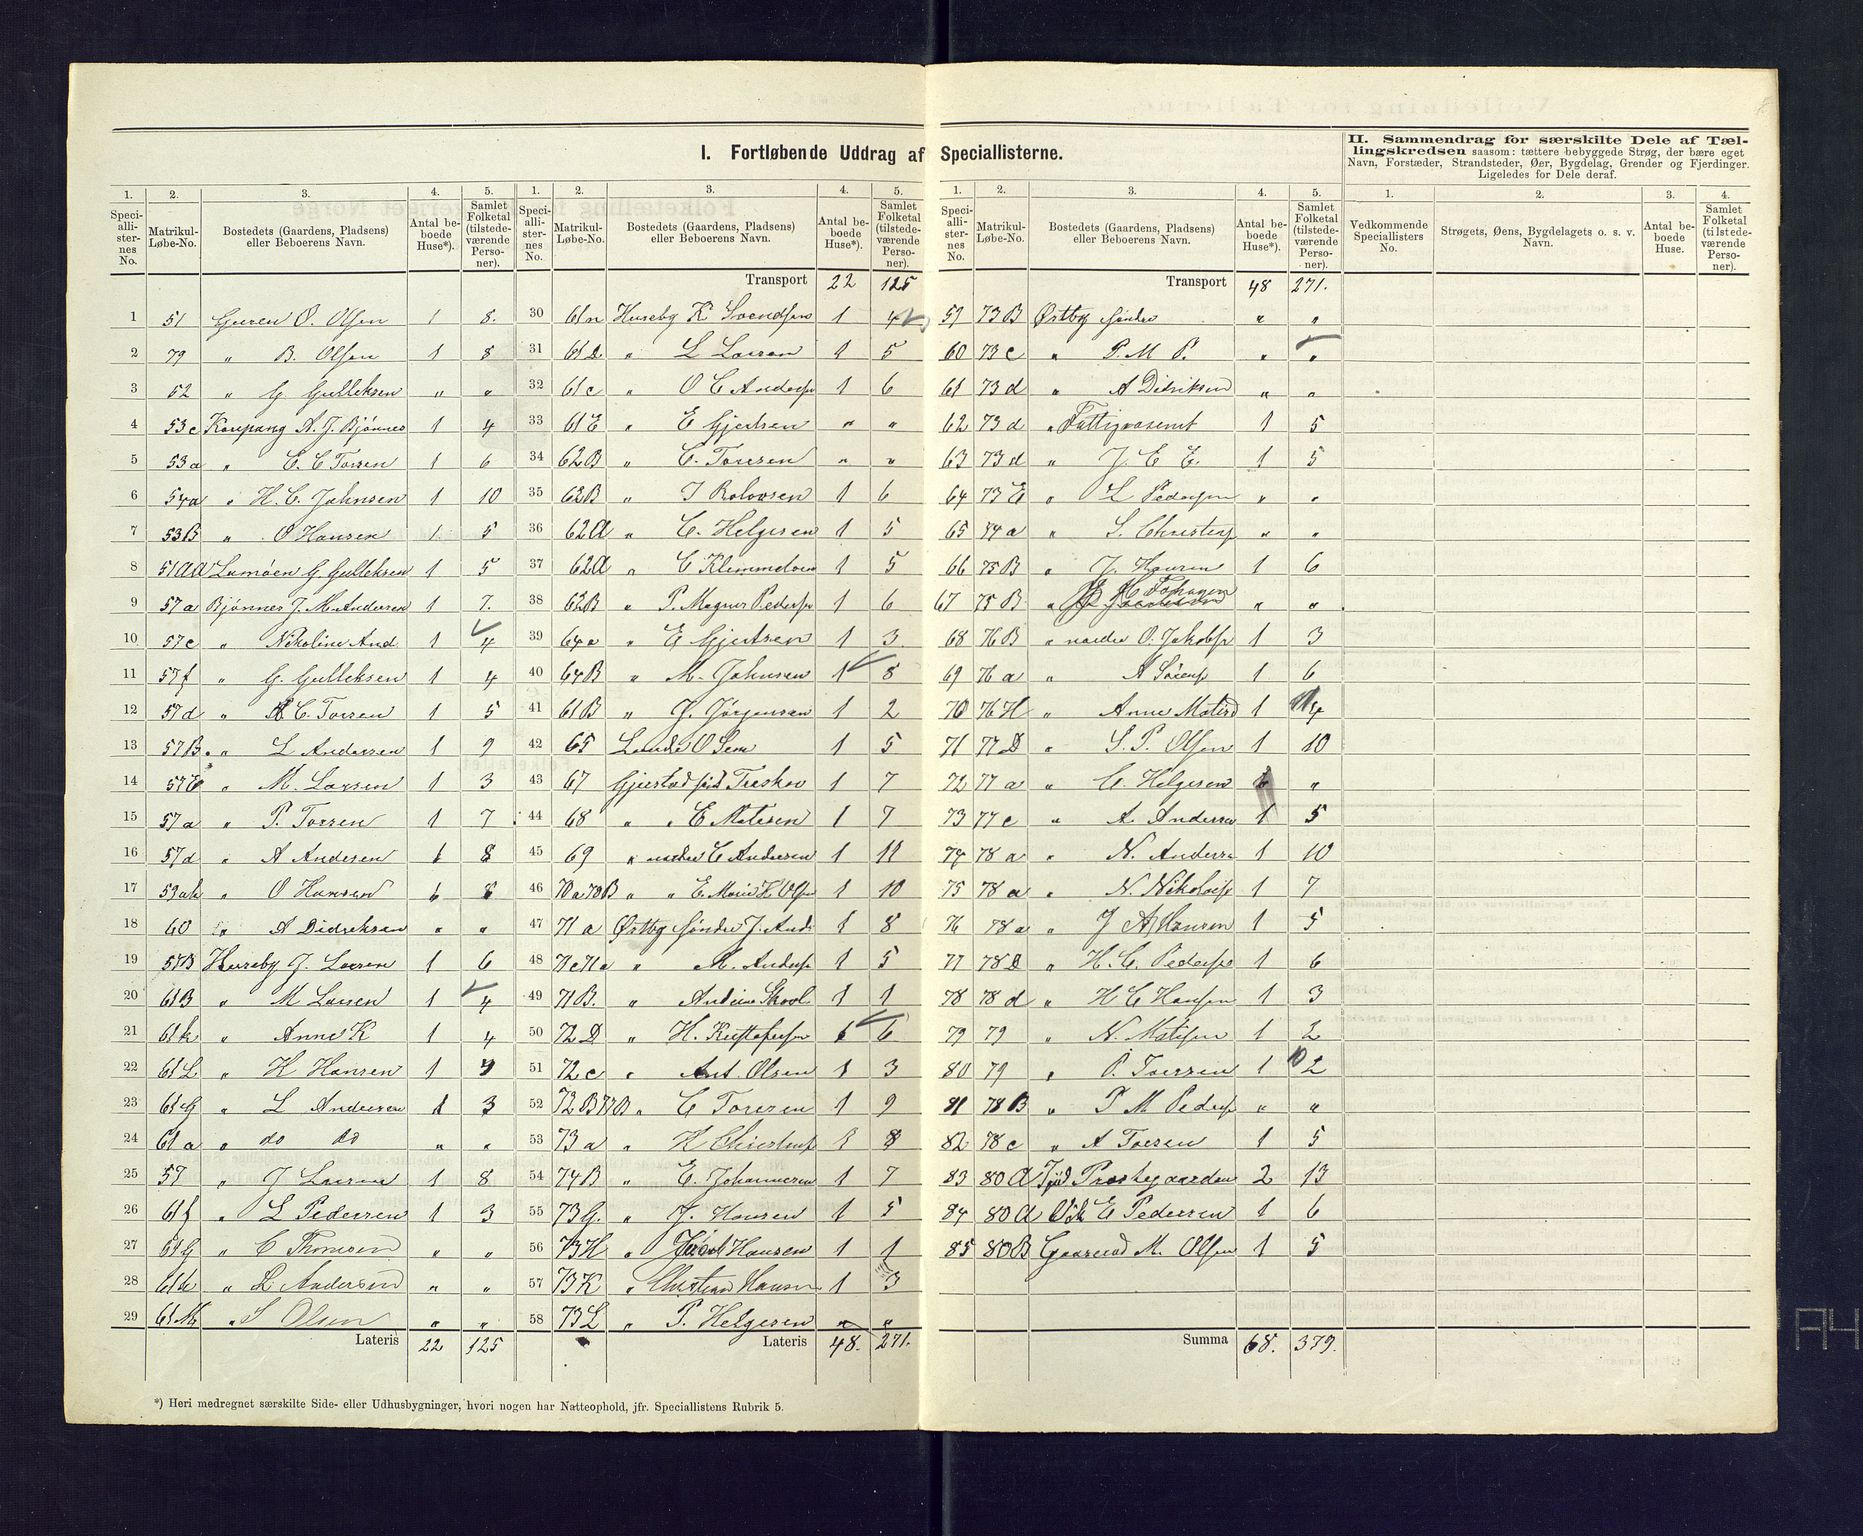 I. Fortløbende Uddrag af Speciallisterne.
II. Sammendrag for særskilte Dele af Tællingskredsen saasom: tættere bebyggede Strøg, der bære eget Navn, Forstæder, Strandsteder, Øer, Bygdelag, Grender og Fjerdinger. Ligeledes for Dele deraf.
1. 2. 3. 4. 5. 1. 2. 3. 4. 5. 1. 2. 3. 4. 5. 1. 2. 3. 4.
Speciallisternes No. Matrikul-Løbe-No. Bostedets (Gaardens, Pladsens) eller Beboerens Navn. Antal beboede Huse*). Samlet Folketal (tilstedeværende Personer).
Speciallisternes No. Matrikul-Løbe-No. Bostedets (Gaardens, Pladsens) eller Beboerens Navn. Antal beboede Huse*). Samlet Folketal (tilstedeværende Personer).
Speciallisternes No. Matrikul-Løbe-No. Bostedets (Gaardens, Pladsens) eller Beboerens Navn. Antal beboede Huse*). Samlet Folketal (tilstedeværende Personer).
Vedkommende Speciallisters No. Strøgets, Øens, Bygdelagets o. s. v. Navn. Antal beboede Huse. Samlet Folketal (tilstedeværende Personer).
1 51 O. Olsen 1 8.
2 79 " B. Olsen 1 8
3 52 " G Gulleksen " "
4 53c Kaupang A. J. Bjønnes 1 4
5 53a " C. C Torsen 1 6
6 54a " H. C. Johnsen 1 10
7 53B " O Hansen 1 5
8 51Ad Lamøen G. Gulleksen 1 5
9 57a Bjønnes J. M. Andersen 1 7.
10 57c " Nikoline And. 1 4
11 57f " G. Gulleksen 1 4
12 57d " A C. Torsen 1 5
13 57B " L Andersen 1 9
14 57E " M. Larsen 1 3
15 57a " P. Torsen 1 7
16 57d " A Andersen 1 8
17 O Hansen
18 60 " A Didriksen " "
19 57B Huseby J. Larsen 1 6
20 61B " M Larsen 1 4
21 61k " Anne K 1 4
22 61L " H Hansen 1
23 61G " L Andersen 1 3
24 61a " do do " "
25 57 " J Larsen 1 8
26 61f " L Pedersen 1 3
27 61G " C Thomsen " "
28 " L. Andersen " "
29 61M " S Olsen " "
Lateris 22 125
Transport 22 125
30 61n Huseby K Svendsen 1 4
31 61D " L Larsen 1 5
32 61c " O C Anders 1 6
33 61E " E Gjertsen " "
34 62B " C. Toresen " "
35 62B " I Rolovsen 1 6
36 62A " C. Helgesen 1 5
37 62A " C 1 5
38 62B " P. Magnus Peders 1 6
39 64a " E Gjertsen 1 3
40 64B " M. Johnsen 1 8
41 61B " J. Jørgensen 1 2
42 65 Lande O Sem 1 5
43 67 Gjerstad Treskov 1 7
44 68 " " E Matesen 1 7
45 69 " nordre C Andersen 1 11
46 70a 70B " " E. Marie H Ols 1 10
47 71a Østby søndre J. And 1 8
48 71c71a " M. Anders 1 5
49 71B. " Andrine Skool 1 1
50 72D " H. 6
51 72c " Ant. Olsen 1 3
52 72B72B " C Toresen 1 9
53 73a " H Christens 1 8
54 74B " E. Johannesen 1 7
55 73G. " J. Hansen 1 5
56 73H " Hansen 1 1
57 73K " Christian Hansen 1 3
58 73L " P. Helgesen " "
Lateris 48. 271.
Transport 48 271.
59 73B Østby søndre " "
60 73c " P. M P. " "
61 73d " A Didriksen " "
62 73d " Fattigvæsenet 1 5
63 73d " J. E E. 1 5
64 73E " L Pedersen " "
65 74a " S. Christens " "
66 75B " J. Hansen 1 6
67 75B " " "
68 76B " nordre O. Jakobs 1 3
69 76a " A Sørens 1 6
70 76H " Anne Matisd 1 4
71 77D " S. P. Olsen 1 10
72 77a " C. Helgesen "
73 77c " A. Anderse 1 5
74 78a " N. Anderse 1 10
75 78a " N. Nikolais 1 7
76 78a " J A Hansen 1 5
77 78D " H. C. Peders 1 6
78 78d " H C Hansen 1 3
79 79 " N. Matisen 1 2
80 79 " O. Toersen 1 2
81 78B " P M Peders " "
82 78c " A Toersen 1 5
83 80A Præstegaarden 2 13
84 80A Vik E Pedersen 1 6
85 80B M. Olsen 1 5
Summa 68. 379.
*) Heri medregnet særskilte Side- eller Udhusbygninger, hvori nogen har Natteophold, jfr. Speciallistens Rubrik 5.